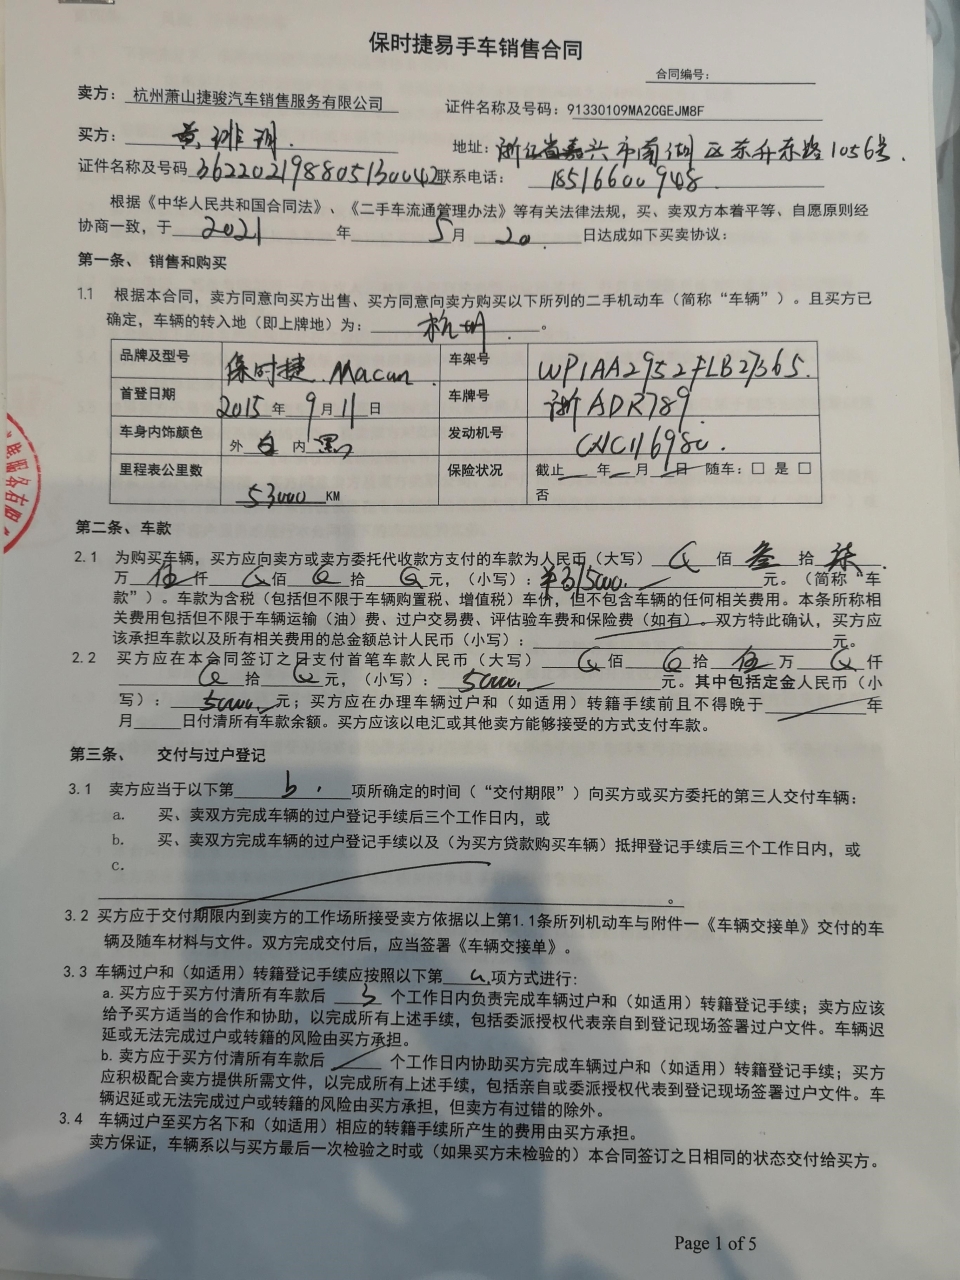 保时捷易手车销售合同
合同编号：
卖方： 杭州萧山捷骏汽车销售服务有限公司 证件名称及号码：91330109MA2CGEJM8F
买方： 黄琲琲. 地址：浙江省嘉兴市南湖区东升东路1056号.
证件名称及号码 362202198805130042 联系电话： 18516600948.
根据《中华人民共和国合同法》、《二手车流通管理办法》等有关法律法规，买、卖双方本着平等、自愿原则经
协商一致，于 2021 年 5月 20. 日达成如下买卖协议：
第一条、 销售和购买
1.1 根据本合同，卖方同意向买方出售、买方同意向卖方购买以下所列的二手机动车（简称“车辆”）。且买方已
确定，车辆的转入地（即上牌地）为： 杭州 。
品牌及型号 保时捷. Macan. 车架号 WP1AA2952FLB27365.
首登日期 2015年 9月11日 车牌号 浙ADR789.
车身内饰颜色 外 白 内 黑 发动机号 CNC116980.
里程表公里数 53000 KM 保险状况 截止 年 月 日 随车：□ 是 □
否
第二条、车款
2.1 为购买车辆，买方应向卖方或卖方委托代收款方支付的车款为人民币（大写） 佰 叁 拾 柒.
万 伍 仟 佰 拾 元，（小写）：¥ 375000. 元。（简称“车
款”）。车款为含税（包括但不限于车辆购置税、增值税）车价，但不包含车辆的任何相关费用。本条所称相
关费用包括但不限于车辆运输（油）费、过户交易费、评估验车费和保险费（如有）。双方特此确认，买方应
该承担车款以及所有相关费用的总金额总计人民币（小写）： 元。
2.2 买方应在本合同签订之日支付首笔车款人民币（大写） 佰 拾 伍 万 仟
拾 元，（小写）： 50000. 元。其中包括定金人民币（小
写）： 50000. 元；买方应在办理车辆过户和（如适用）转籍手续前且不得晚于 年
月 日付清所有车款余额。买方应该以电汇或其他卖方能够接受的方式支付车款。
第三条、 交付与过户登记
3.1 卖方应当于以下第 b. 项所确定的时间（“交付期限”）向买方或买方委托的第三人交付车辆：
a. 买、卖双方完成车辆的过户登记手续后三个工作日内，或
b. 买、卖双方完成车辆的过户登记手续以及（为买方贷款购买车辆）抵押登记手续后三个工作日内，或
c.
。
3.2 买方应于交付期限内到卖方的工作场所接受卖方依据以上第1.1条所列机动车与附件一《车辆交接单》交付的车
辆及随车材料与文件。双方完成交付后，应当签署《车辆交接单》。
3.3 车辆过户和（如适用）转籍登记手续应按照以下第 a. 项方式进行：
a. 买方应于买方付清所有车款后 3 个工作日内负责完成车辆过户和（如适用）转籍登记手续；卖方应该
给予买方适当的合作和协助，以完成所有上述手续，包括委派授权代表亲自到登记现场签署过户文件。车辆迟
延或无法完成过户或转籍的风险由买方承担。
b. 卖方应于买方付清所有车款后 个工作日内协助买方完成车辆过户和（如适用）转籍登记手续；买方
应积极配合卖方提供所需文件，以完成所有上述手续，包括亲自或委派授权代表到登记现场签署过户文件。车
辆迟延或无法完成过户或转籍的风险由买方承担，但卖方有过错的除外。
3.4 车辆过户至买方名下和（如适用）相应的转籍手续所产生的费用由买方承担。
卖方保证，车辆系以与买方最后一次检验之时或（如果买方未检验的）本合同签订之日相同的状态交付给买方。
Page 1 of 5